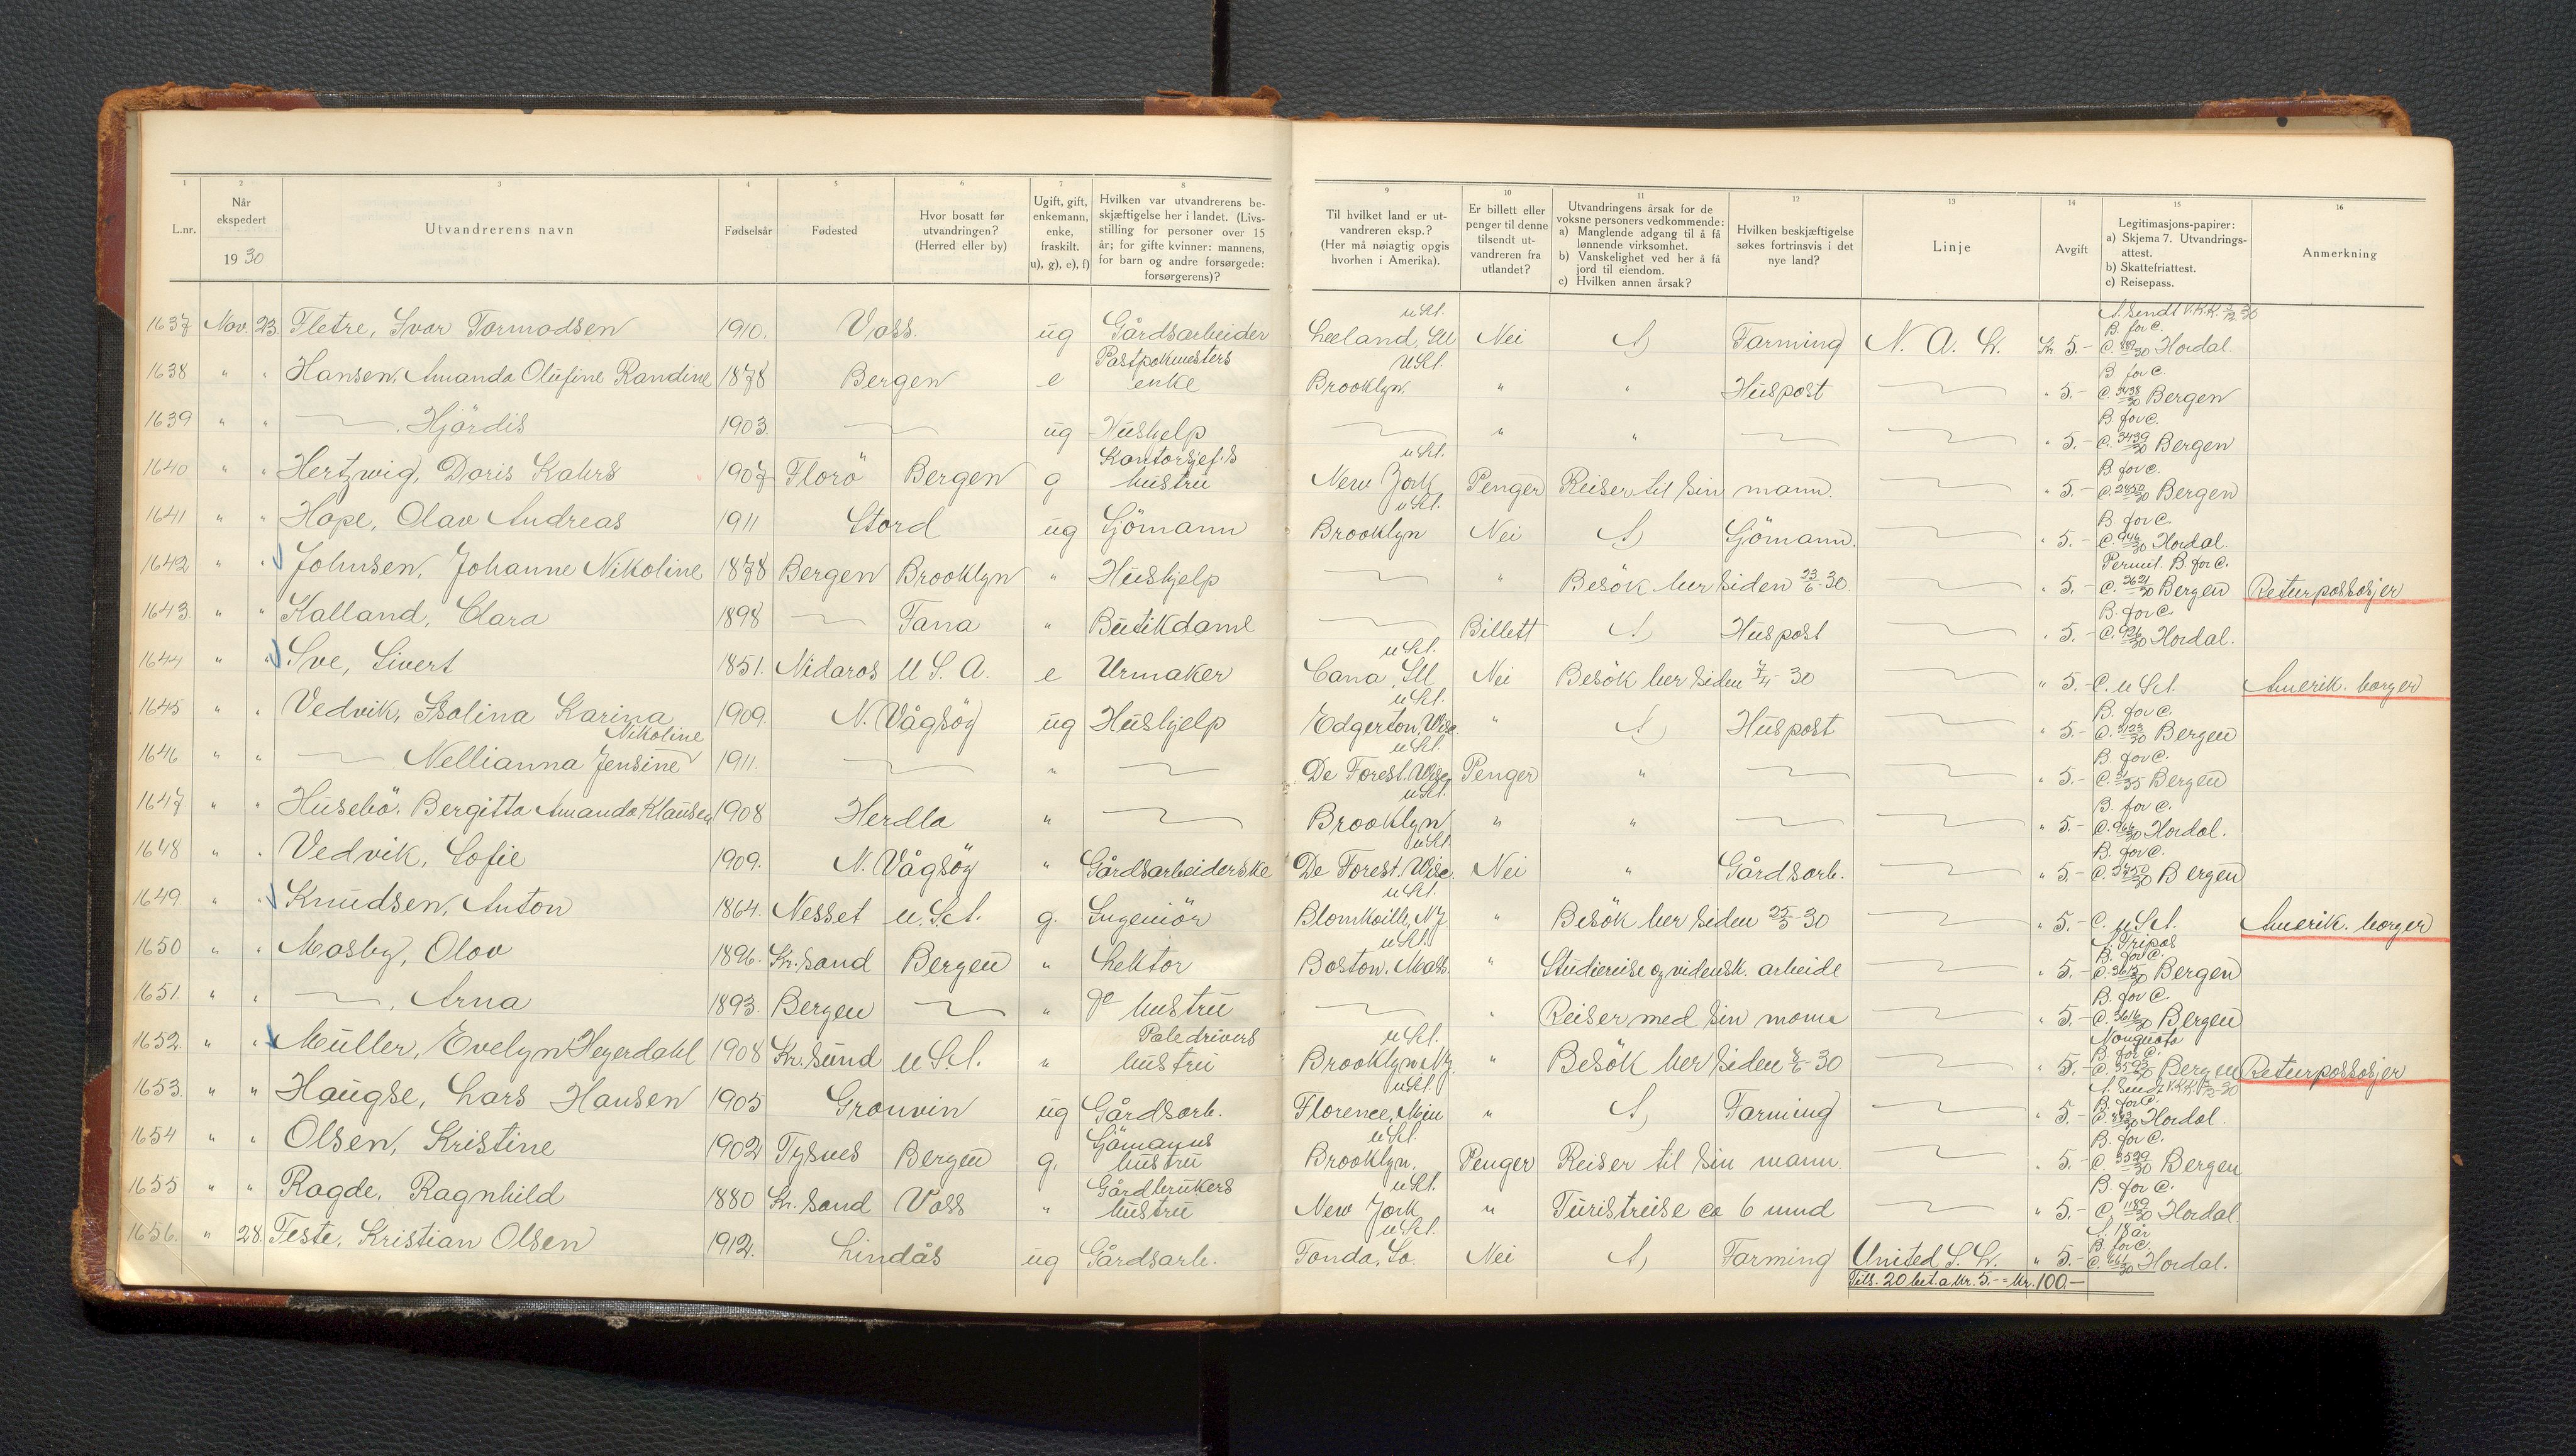 1 2 3 4 5 6 7 8 9 10 11 12 13 14 15 16
L.nr. Når ekspedert 1930 Utvandrerens navn Fødselsår Fødested Hvor bosatt før utvandringen? (Herred eller by) Ugift, gift, enkemann, enke, fraskilt. u), g), e), f) Hvilken var utvandrerens beskjæftigelse her i landet. (Livsstilling for personer over 15 år; for gifte kvinner: mannens, for barn og andre forsørgede: forsørgerens)? Til hvilket land er utvandreren eksp.? (Her må nøiagtig opgis hvorhen i Amerika). Er billett eller penger til denne tilsendt utvandreren fra utlandet? Utvandringens årsak for de voksne personers vedkommende: a) Manglende adgang til å få lønnende virksomhet. b) Vanskelighet ved her å få jord til eiendom. c) Hvilken annen årsak? Hvilken beskjæftigelse søkes fortrinsvis i det nye land? Linje Avgift Legitimasjons-papirer: a) Skjema 7. Utvandringsattest. b) Skattefriattest. c) Reisepass. Anmerkning
1637 Nov. 23. Fletre, Ivar Tormodsen 1910. Voss. ug Gårdsarbeider Leeland, Ill USA. Nei A) Farming N. A. L. Kr. 5.- A. sendt V.K.K. B. for C. C. Hordal.
1638 " " Hansen, Amanda Olufine Randine 1878 Bergen e enke Brooklyn. USA. " " Huspost 5.- B. for C. C. 3438/30 Bergen
1639 " " — Hjördis 1903. — ug Hushelp — " " — — " 5.- B. for C. C. 3439/30 Bergen
1640 " " Hertzwig, Doris Kahrs 1907 Florö Bergen g Kontorsjefs hustru New York USA. Penger Reiser til sin mann. — " 5.- B. for C. C. 2450/30 Bergen
1641 " " Hope, Olav Andreas 1911 Stord ug Sjömann Brooklyn USA. Nei A) Sjömann. — " 5.- B. for C. C. 946/30 Hordal.
1642 " " Johnsen, Johanne Nikoline 1878 Bergen Brooklyn " Hushjelp — " Besök her siden 23/6-30. — " 5.- Permit. B. for C. C. 3621/30 Bergen Returpassasjer
1643. " " Kalland, Clara 1898 — Fana " Butikdame — Billett A) Huspost — " 5.- B. for C. C. 926/30 Hordal.
1644 " " Sve, Sivert 1851. Nidaros U.S.A. e Urmaker Cana, Ill USA. Nei Besök her siden 7/4-30 — " 5.- C. USA. Amerik. borger
1645 " " Vedvik, Isolina Karina 1909. N. Vågsöy ug Hushjelp Edgerton, Wisc. USA. " A) Huspost — " 5.- B. for C. C. 3123/30 Bergen
1646 " " — Nellianna Jensine Nikoline 1911. — " — De Forest. Wisc USA. Penger " — — " 5.- B. for C. C. Bergen
1647 " " Husebö. Bergitta Amanda Klausen 1908 Herdla " — Brooklyn USA. " " — — " 5.- B. for C. C. 966/30 Hordal.
1648 " " Vedvik, Sofie 1909. N. Vågsöy " Gårdsarbeiderske De Forest. Wisc. USA. Nei " Gårdsarb. — " 5.- B. for C. C. Bergen
1649 " " Knudsen, Anton 1864. Nesset U.S.A. g. Ingeniör USA. " Besök her siden 25/5-30 — " 5.- C. USA. Amerik. borger
1650 " " Mosby, Olav 1896. Kr.sand Bergen " Lektor Boston. Mass. USA. " Studiereise og vidensk. arbeide — " 5.- B. for C. C. 3615/30 Bergen
1651. " " —, Arna 1893. Bergen — " hustru — " Reiser med sin mann — " 5.- B. for C. C. 3616/30 Bergen
1652. " " Müller, Evelyn Heyerdahl 1908 Kr.sund U.S.A. " hustru Brooklyn N.Y. USA. " Besök her siden 8/6-30 — " 5.- Nonquota B. for C. C. Bergen Returpassasjer
1653. " " Haugse, Lars Hansen 1905 Granvin ug Gårdsarb. Florence, Min USA. " A) Farming — " 5.- A. sendt V.K.K. B. for C. C. Hordal.
1654 " " Olsen, Kristine 1902 Tysnes Bergen g. Sjömanns hustru Brooklyn. USA. Penger Reiser til sin mann. — " 5.- B. for C. C. 3529/30 Bergen
1655 " " Ragde, Ragnhild 1880 Kr.sand Voss " Gårdbrukers hustru New York USA. " Turistreise ca 6 mnd — " 5.- B. for C. C. 1189/30 Hordal
1656. " 28. Feste, Kristian Olsen 1912. Lindås ug Gårdsarb. Fonda, Io USA. Nei A) Farming United S. L. " 5.- A. 18 år B. for C. C. 666/30 Hordal.
Tils. 20 bet. a kr. 5.- = kr. 100.-